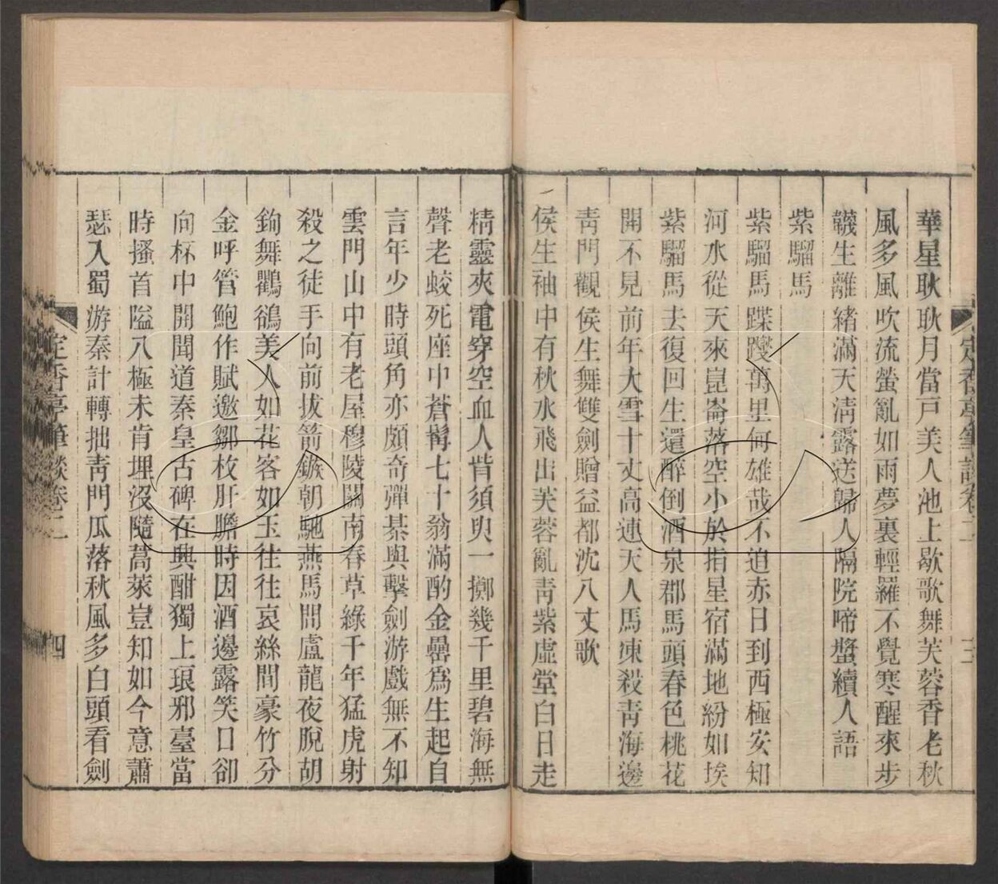 華星耿耿月當戶美人池上歇歌舞芙蓉香老秋
風多風吹流螢亂如雨夢裏輕羅不覺寒醒來步
韈生離緒滿天淸露送歸人隔院啼螿續人語
紫騮馬
紫騮馬蹀躞萬里何雄哉不追赤日到西極安知
河水從天來崑崙落空小於指星宿滿地紛如埃
紫騮馬去復回生還醉倒酒泉郡馬頭春色桃花
開不見前年大雪十丈高連天人馬凍殺靑海邊
靑門觀侯生舞雙劍贈益都沈八丈歌
侯生袖中有秋水飛出芙蓉亂靑紫虛堂白日走
精靈夾電穿空血人眥須臾一擲幾千里碧海無
聲老蛟死座中蒼髯七十翁滿酌金罍爲生起自
言年少時頭角亦頗奇彈棊與擊劍游戲無不知
雲門山中有老屋穆陵關南春草綠千年猛虎射
殺之徒手向前拔箭鏃朝馳燕馬間盧龍夜脫胡
鉤舞鸜鵒美人如花客如玉往往哀絲間豪竹分
金呼管鮑作賦邀鄒枚肝膽時因酒邊露笑口卻
向杯中開聞道秦皇古碑在興酣獨上琅邪臺當
時搔首隘八極未肯埋沒隨蒿萊豈知如今意蕭
瑟入蜀游秦計轉拙靑門瓜落秋風多白頭看劍
定香亭筆談卷二
四